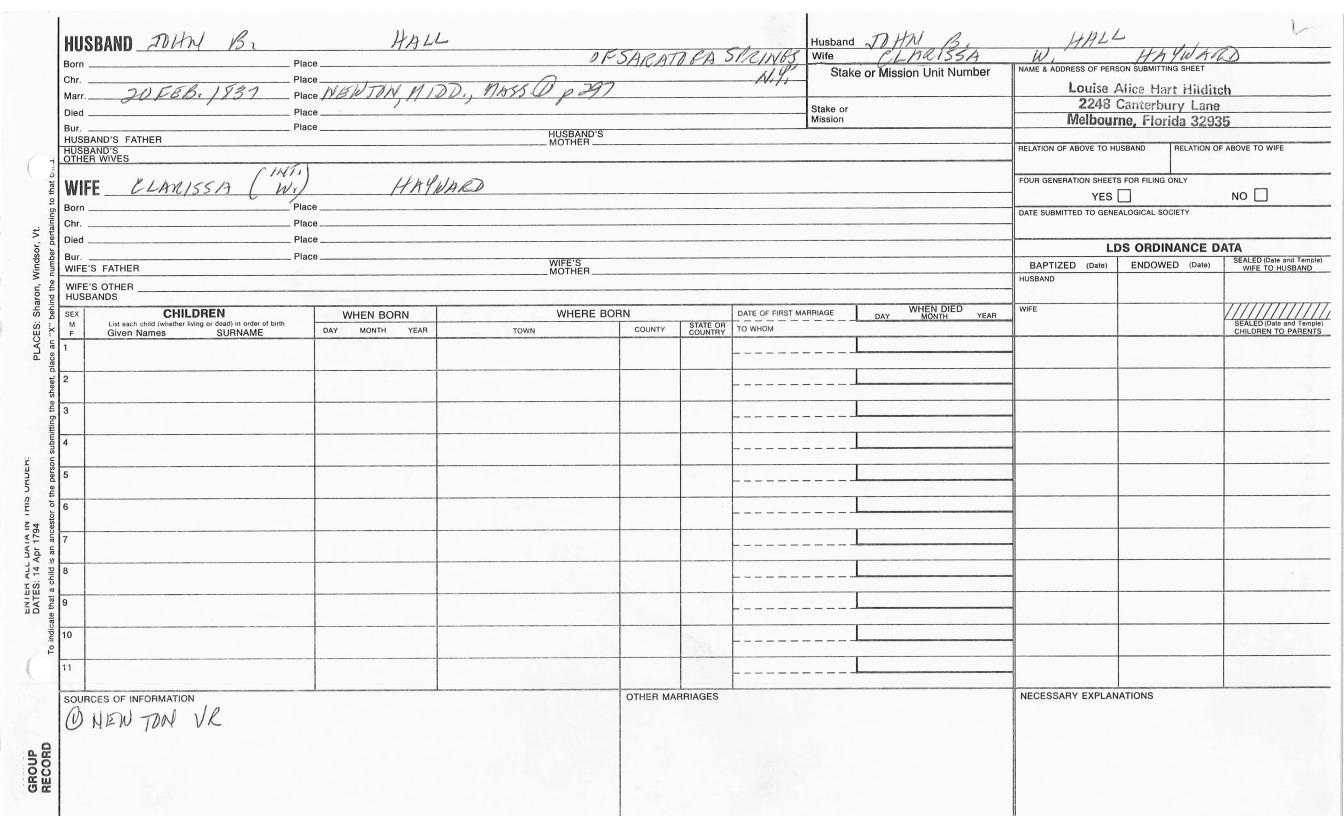 HUSBAND JOHN B. HALL
Born Place OF SARATOGA SPRINGS
Chr. Place N.Y.
Marr. 20 FEB. 1837 Place NEWTON, MIDD., MASS ① p 297
Died Place
Bur. Place
HUSBAND'S FATHER HUSBAND'S MOTHER
HUSBAND'S OTHER WIVES
Husband JOHN B. HALL
Wife CLARISSA W. HAYWARD
Stake or Mission Unit Number
Stake or Mission
NAME & ADDRESS OF PERSON SUBMITTING SHEET
Louise Alice Hart Hilditch
2248 Canterbury Lane
Melbourne, Florida 32935
RELATION OF ABOVE TO HUSBAND RELATION OF ABOVE TO WIFE
FOUR GENERATION SHEETS FOR FILING ONLY
YES NO
DATE SUBMITTED TO GENEALOGICAL SOCIETY
WIFE CLARISSA (INT. W.) HAYWARD
Born Place
Chr. Place
Died Place
Bur. Place
WIFE'S FATHER WIFE'S MOTHER
WIFE'S OTHER HUSBANDS
LDS ORDINANCE DATA
BAPTIZED (Date) ENDOWED (Date) SEALED (Date and Temple) WIFE TO HUSBAND
HUSBAND
WIFE
SEALED (Date and Temple) CHILDREN TO PARENTS
SEX M F
CHILDREN
List each child (whether living or dead) in order of birth
Given Names SURNAME
WHEN BORN
DAY MONTH YEAR
WHERE BORN
TOWN COUNTY STATE OR COUNTRY
DATE OF FIRST MARRIAGE
TO WHOM
WHEN DIED
DAY MONTH YEAR
1
2
3
4
5
6
7
8
9
10
11
SOURCES OF INFORMATION
① NEWTON VR
OTHER MARRIAGES
NECESSARY EXPLANATIONS
PLACES: Sharon, Windsor, Vt.
ENTER ALL DATA IN THIS ORDER:
DATES: 14 Apr 1794
To indicate that a child is an ancestor of the person submitting the sheet, place an "X" behind the number pertaining to that
GROUP RECORD